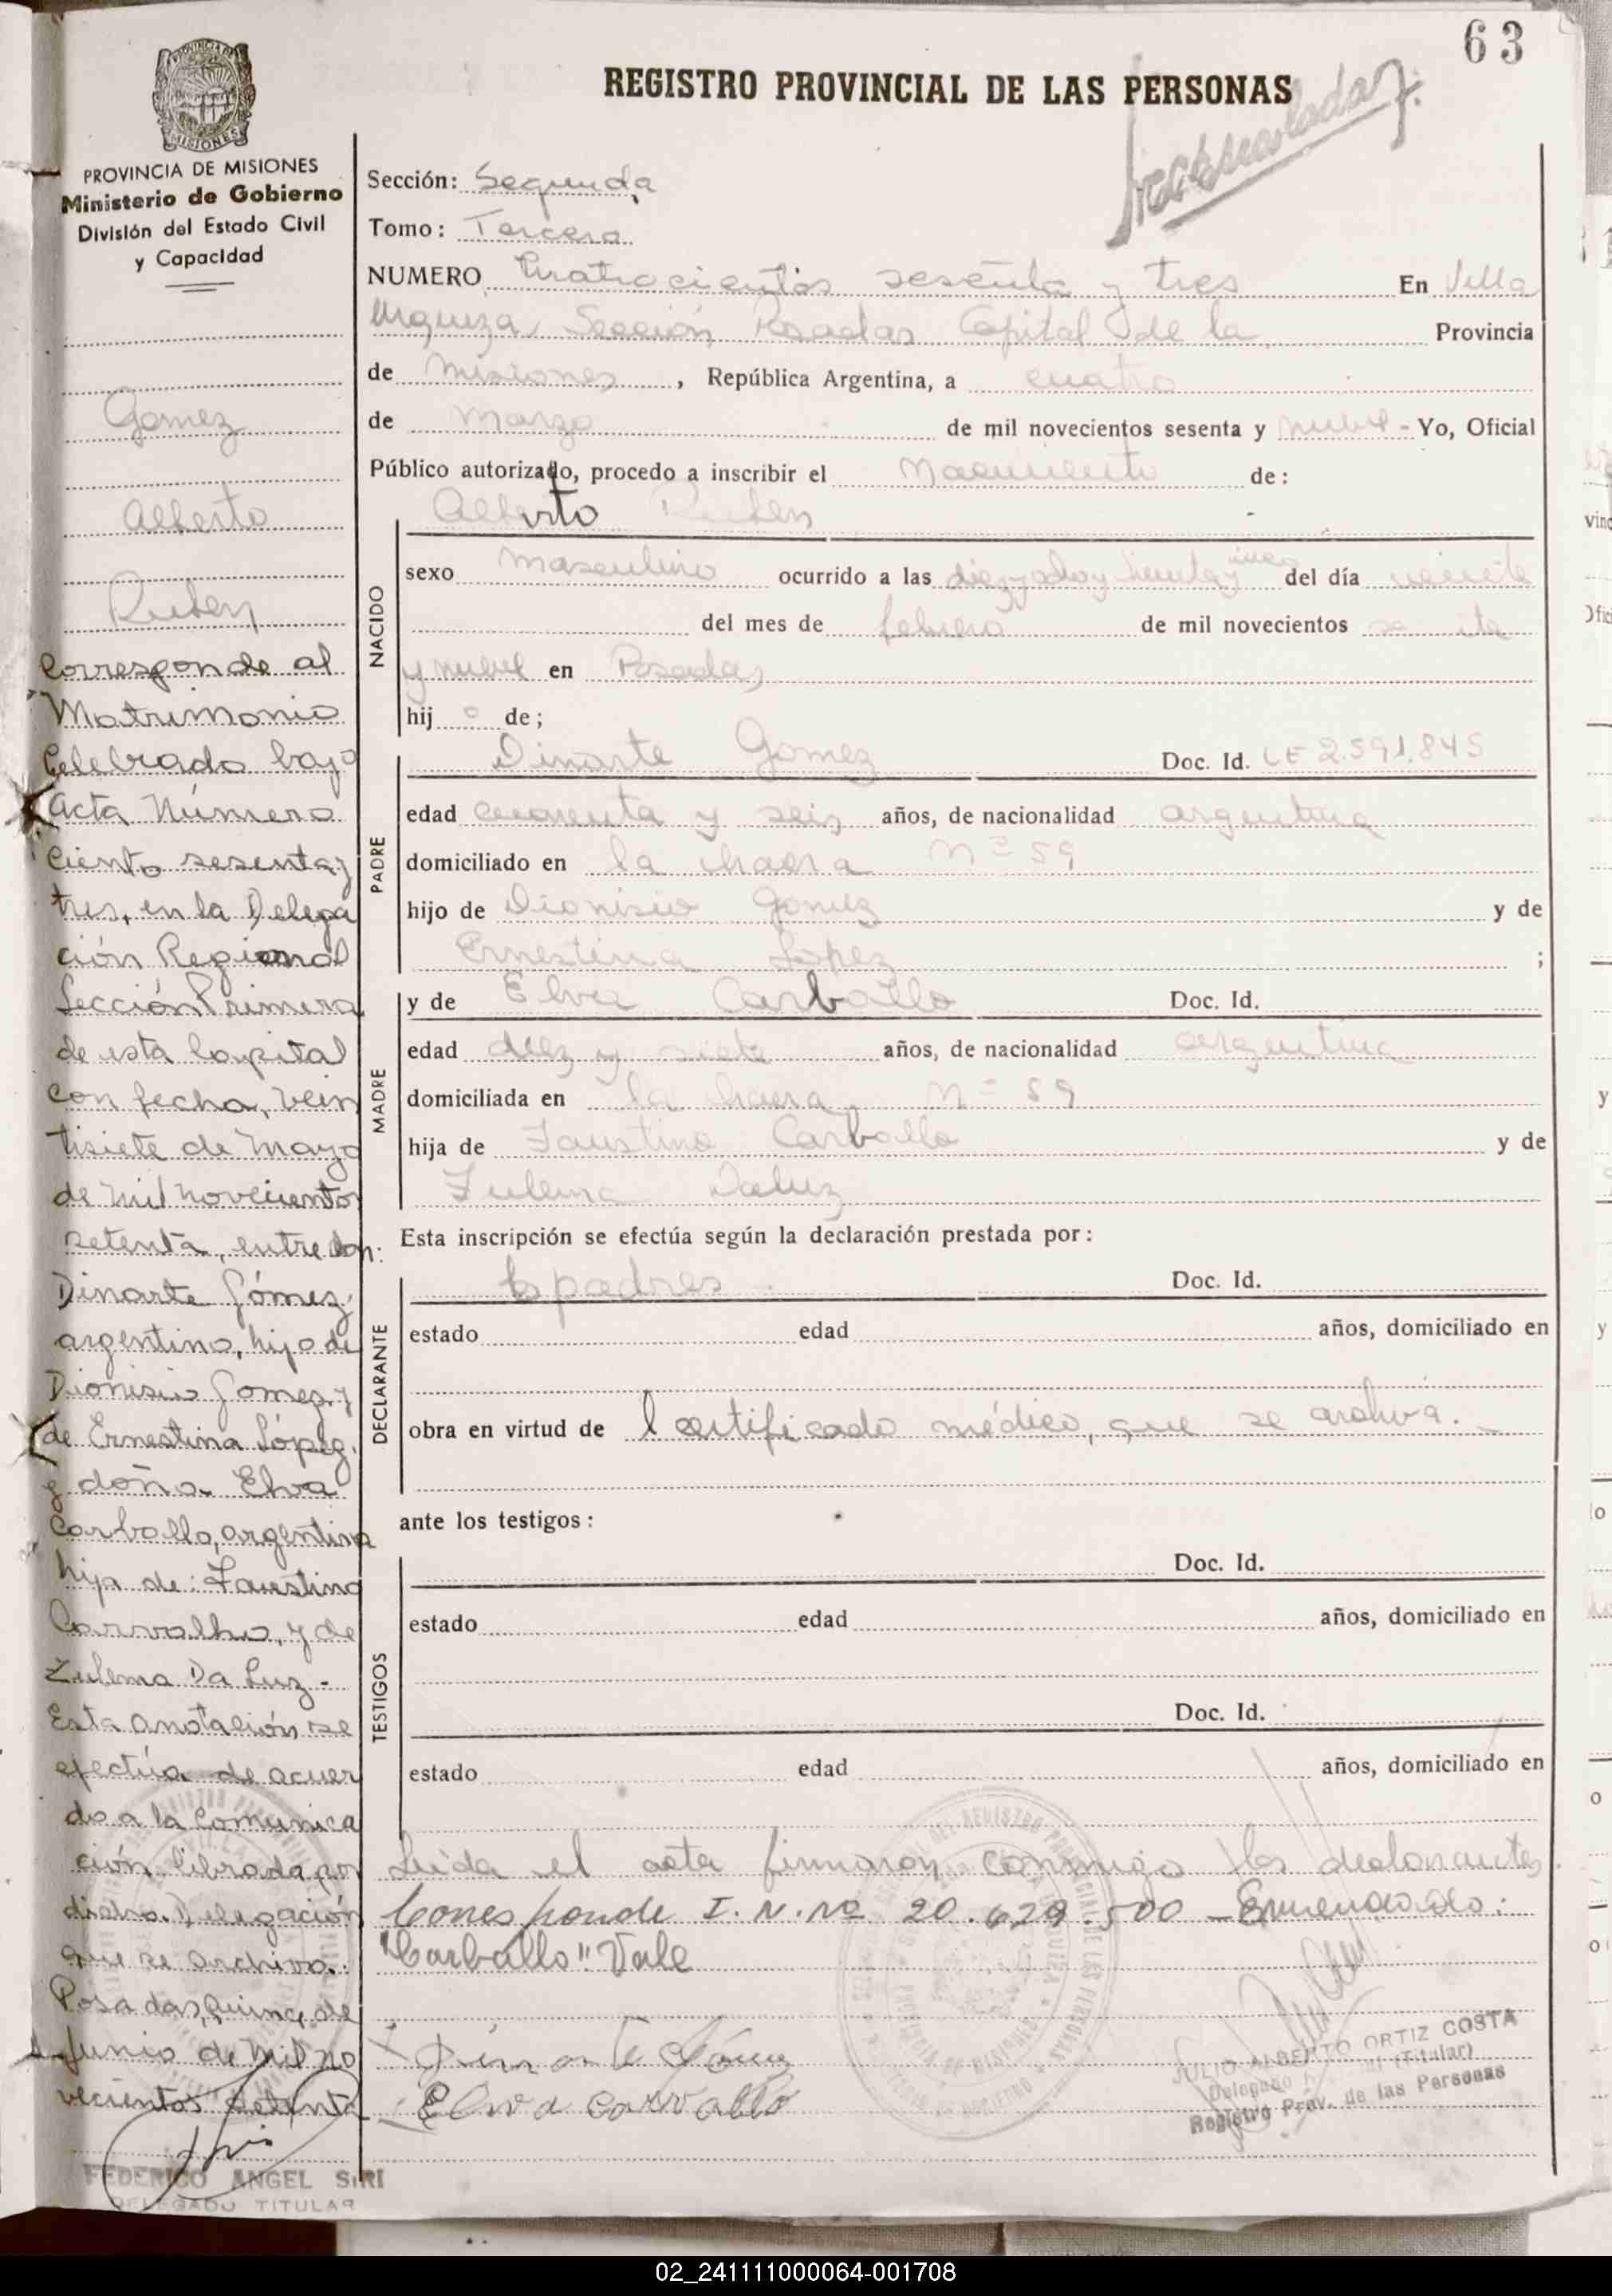 63
REGISTRO PROVINCIAL DE LAS PERSONAS
PROVINCIA DE MISIONES
Ministerio de Gobierno
División del Estado Civil
y Capacidad
Gomez
Alberto
Ruben
Corresponde al
Matrimonio
Celebrado bajo
Acta Número
Ciento sesenta y
tres, en la Delega
ción Regional
Sección Primera
de esta Capital
con fecha, vein
tisiete de Mayo
de mil novecientos
setenta, entre don:
Dinarte Gómez,
argentino, hijo de
Dionisio Gomez y
de Ernestina López,
y doña Elva
Carballo, argentina
hija de: Faustino
Carvalho, y de
Zulema Da Luz -
Esta anotación se
efectúa de acuer
do a la Comunica
ción librada por
dicha Delegación
que se archiva.
Posadas, quince de
Junio de Mil no
vecientos setenta
FEDERICO ANGEL SIRI
DELEGADO TITULAR
Sección: Segunda
Tomo: Tercero
NUMERO Cuatrocientos sesenta y tres En Villa
Urquiza, Sección Posadas Capital de la Provincia
de Misiones, República Argentina, a cuatro
de Marzo de mil novecientos sesenta y nueve - Yo, Oficial
Público autorizado, procedo a inscribir el Nacimiento de:
NACIDO
Alberto Ruben
sexo masculino ocurrido a las diez y ocho y treinta y cinco del día veinte
del mes de febrero de mil novecientos se ta
y nueve en Posadas,
hij o de;
PADRE
Dinarte Gomez Doc. Id. LE 2.591.845
edad cuarenta y seis años, de nacionalidad argentina
domiciliado en la chacra Nº 59
hijo de Dionisio Gomez y de
Ernestina Lopez ;
MADRE
y de Elva Carballo Doc. Id.
edad diez y siete años, de nacionalidad argentina
domiciliada en la chacra Nº 59
hija de Faustino Carballo y de
Zulema Daluz
Esta inscripción se efectúa según la declaración prestada por:
DECLARANTE
los padres Doc. Id.
estado edad años, domiciliado en
obra en virtud de l certificado médico, que se archiva. -
ante los testigos:
TESTIGOS
Doc. Id.
estado edad años, domiciliado en
Doc. Id.
estado edad años, domiciliado en
Leída el acta firmaron conmigo los declarantes
Corresponde I. N. Nº 20.629.500 - Enmendado:
"Carballo" Vale
Dinarte Gómez
Elva carvallo
JULIO ALBERTO ORTIZ COSTA
Delegado (Titular)
Registro Prov. de las Personas
02_241111000064-001708